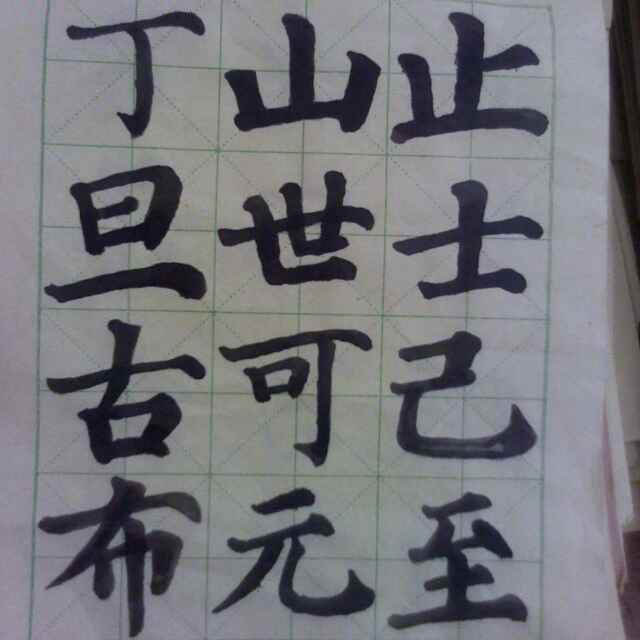 止士己至
山世可元
丁旦古布